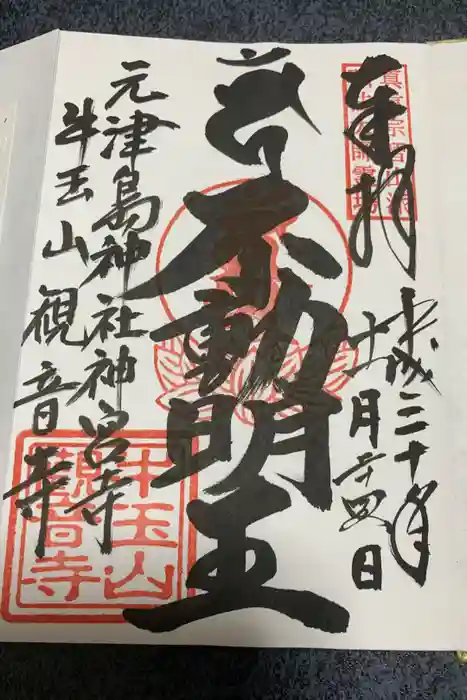 奉拝
平成三十年
十一月二十四日
不動明王
元津島神社神宮寺
牛玉山観音寺
牛玉山
観音寺